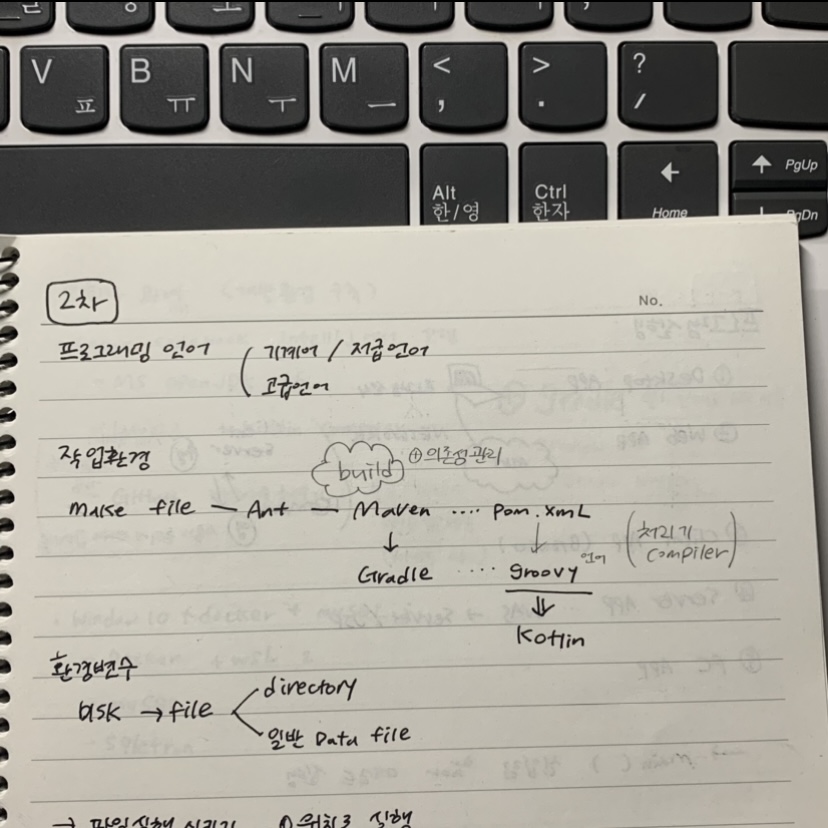 V ㅍ B ㅠ N ㅜ M ㅡ < , > . ? /
Alt 한/영 Ctrl 한자 ← Home ↑ PgUp
PgDn
No.
2차
프로그래밍 언어 ( 기계어 / 저급언어
고급언어
작업환경 build ⊕ 의존성관리
make file — Ant — Maven .... Pom.xmL
↓ ↓ (처리기
compiler)
Gradle .... groovy 언어
⇓
Kotlin
환경변수
DISK → file < directory
일반 Data file
→ 파일실행 시키기 ①위치로 실행